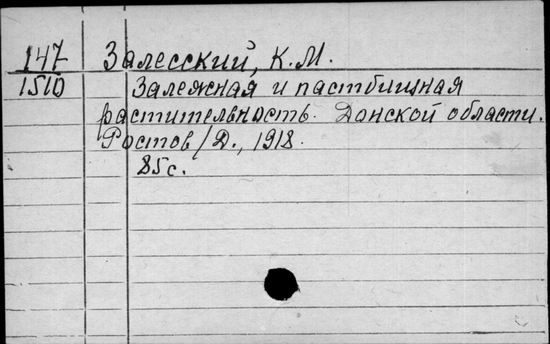 147 Залесский, К.М.
1510 Залежная и пастбищная
растительность. Донской области.
Ростов/Д., 1918.
85с.